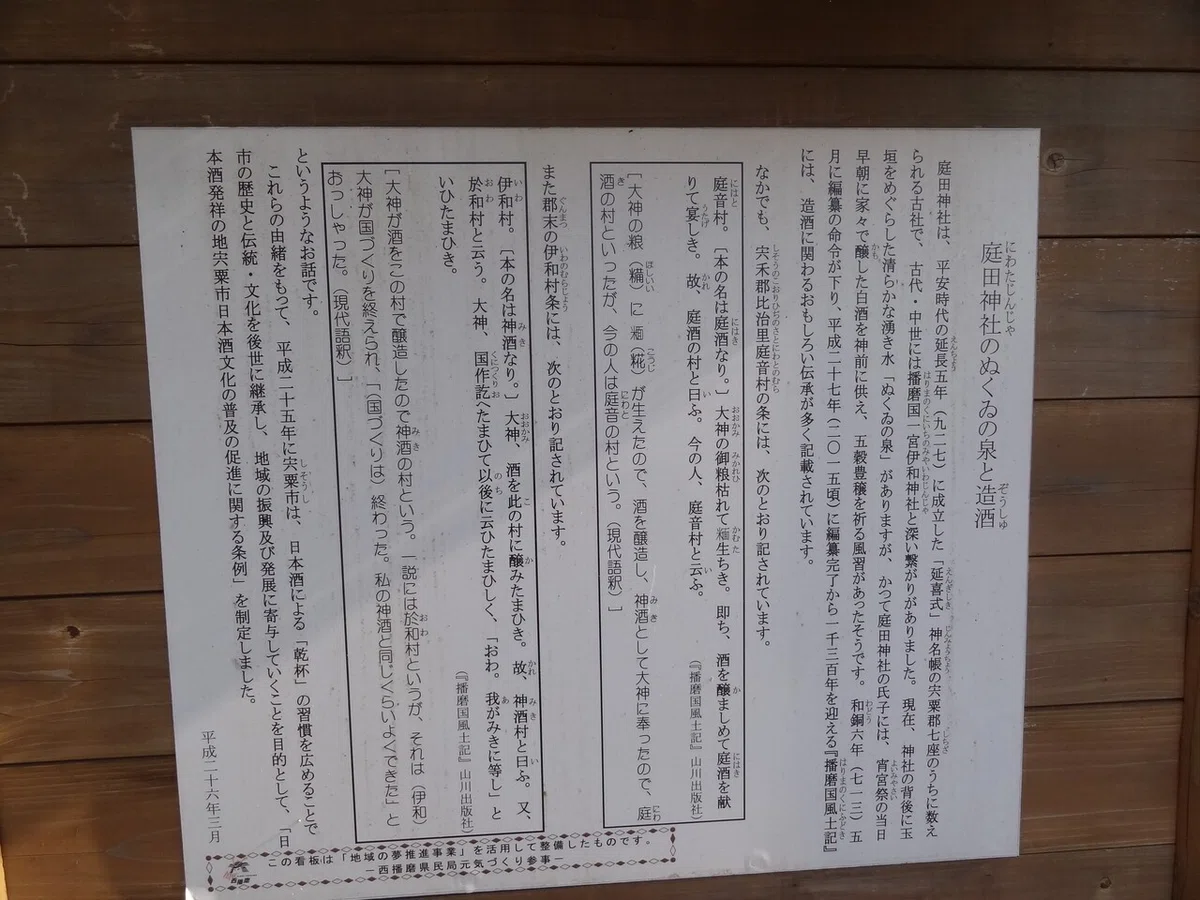 庭田神社のぬくゐの泉と造酒
庭田神社は、平安時代の延長五年（九二七）に成立した「延喜式」神名帳の宍粟郡七座のうちに数え
られる古社で、古代・中世には播磨国一宮伊和神社と深い繋がりがありました。現在、神社の背後に玉
垣をめぐらした清らかな湧き水「ぬくゐの泉」がありますが、かつて庭田神社の氏子には、宵宮祭の当日
早朝に家々で醸した白酒を神前に供え、五穀豊穣を祈る風習があったそうです。和銅六年（七一三）五
月に編纂の命令が下り、平成二十七年（二〇一五頃）に編纂完了から一千三百年を迎える『播磨国風土記』
には、造酒に関わるおもしろい伝承が多く記載されています。
なかでも、宍禾郡比治里庭音村の条には、次のとおり記されています。
庭音村。〔本の名は庭酒なり。〕大神の御粮枯れて𥹢生ちき。即ち、酒を醸ましめて庭酒を献
りて宴しき。故、庭酒の村と曰ふ。今の人、庭音村と云ふ。
（『播磨国風土記』山川出版社）
［大神の粮（糒）に𥹢（糀）が生えたので、酒を醸造し、神酒として大神に奉ったので、庭
酒の村といったが、今の人は庭音の村という。（現代語釈）］
また郡末の伊和村条には、次のとおり記されています。
伊和村。〔本の名は神酒なり。〕大神、酒を此の村に醸みたまひき。故、神酒村と曰ふ。又、
於和村と云う。大神、国作訖へたまひて以後に云ひたまひしく、「おわ。我がみきに等し」と
いひたまひき。
（『播磨国風土記』山川出版社）
［大神が酒をこの村で醸造したので神酒の村という。一説には於和村というが、それは（伊和）
大神が国づくりを終えられ、「（国づくりは）終わった。私の神酒と同じくらいよくできた」と
おっしゃった。（現代語釈）］
というようなお話です。
これらの由緒をもって、平成二十五年に宍粟市は、日本酒による「乾杯」の習慣を広めることで
市の歴史と伝統・文化を後世に継承し、地域の振興及び発展に寄与していくことを目的として、「日
本酒発祥の地宍粟市日本酒文化の普及の促進に関する条例」を制定しました。
平成二十六年三月
この看板は「地域の夢推進事業」を活用して整備したものです。
－西播磨県民局元気づくり参事－
西播磨